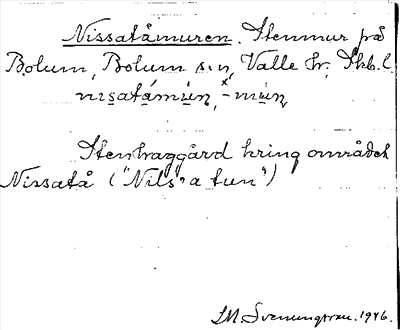 Nissatåmuren. Stenmur på
Bolum, Bolum s:n, Valle hr, Skb.l
nisatámùn, -mùn
Stenhaggård kring området
Nissatå ("Nils's a tun")
SM. Svenungsson. 1946.